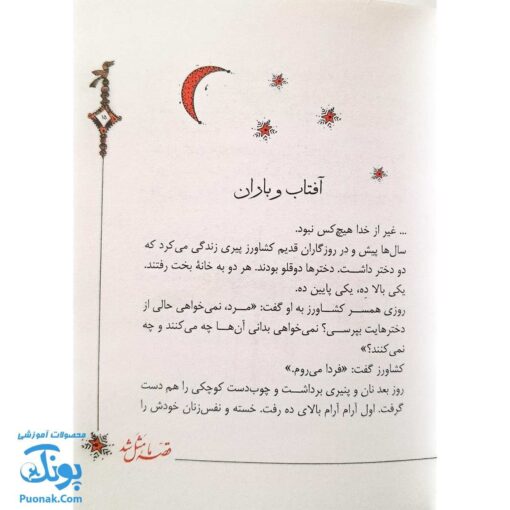 ۱۵
آفتاب و باران
... غیر از خدا هیچ‌کس نبود.
سال‌ها پیش و در روزگاران قدیم کشاورز پیری زندگی می‌کرد که
دو دختر داشت. دخترها دوقلو بودند. هر دو به خانهٔ بخت رفتند.
یکی بالا دِه، یکی پایین ده.
روزی همسر کشاورز به او گفت: «مرد، نمی‌خواهی حالی از
دخترهایت بپرسی؟ نمی‌خواهی بدانی آن‌ها چه می‌کنند و چه
نمی‌کنند؟»
کشاورز گفت: «فردا می‌روم.»
روز بعد نان و پنیری برداشت و چوب‌دست کوچکی را هم دست
گرفت. اول آرام آرام بالای ده رفت. خسته و نفس‌زنان خودش را
قصه ما مثل شد
محصولات آموزشی
پونک
Puonak.Com